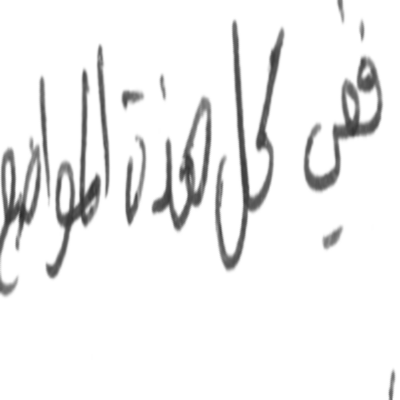 ففي كل هذة المواضع